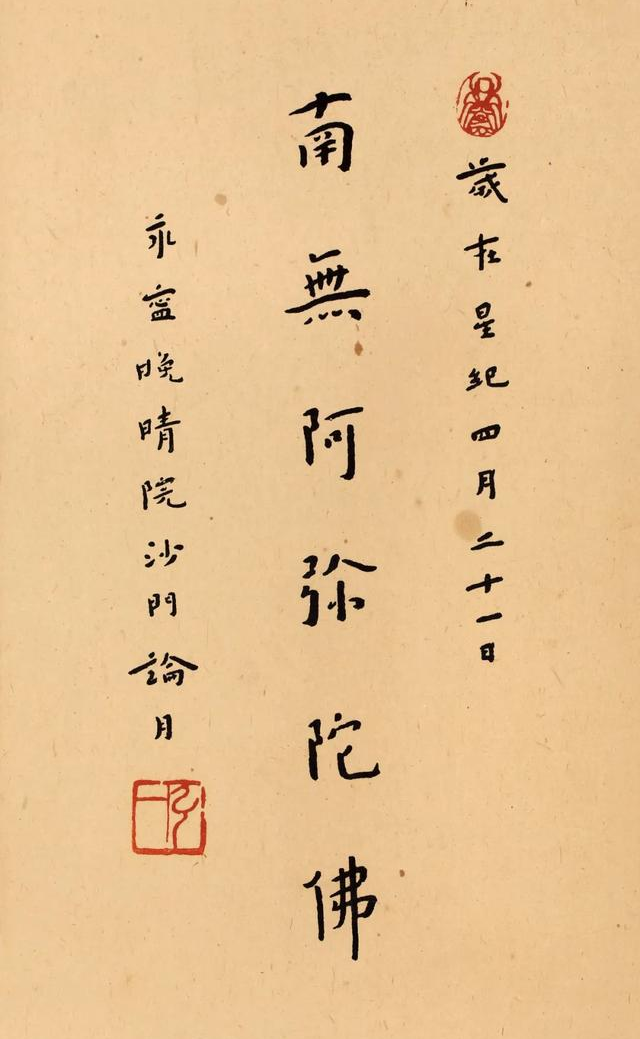 歲在星紀四月二十一日
南無阿弥陀佛
永寍晚晴院沙門論月